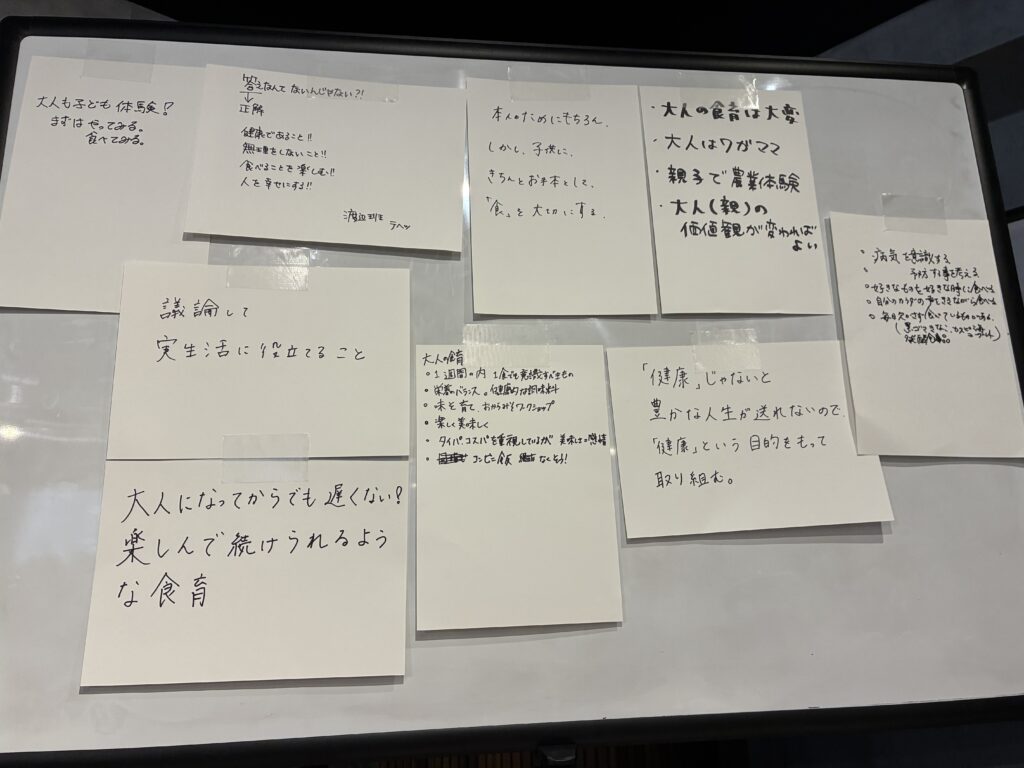 大人も子ども体験!
まずはやってみる。
食べてみる。
答えなんてないんじゃない?!
↓
正解
健康であること!!
無理をしないこと!!
食べることを楽しむ!!
人を幸せにする!!
渡辺
本人のためにもちろん、
しかし、子供に、
きちんとお手本として、
「食」を大切にする。
・大人の食育は大変
・大人はワガママ
・親子で農業体験
・大人(親)の
価値観が変われば
よい
・病気を意識する
・予防する事を考える
○好きなものを好きな時に食べる
○自分のカラダの声をききながら食べる
○毎日欠かさず食べているものがある
議論して
実生活に役立てること
大人の食育
○1週間の内 1食でも意識すべきもの
○栄養のバランス。健康的な調味料
○味を育て、おからみそワークショップ
○楽しく美味しく
・タイパコスパを重視しているが 美味しさの
・コンビニ食 なくそう!
「健康」じゃないと
豊かな人生が送れないので、
「健康」という目的をもって
取り組む。
大人になってからでも遅くない!
楽しんで続けられるよう
な食育